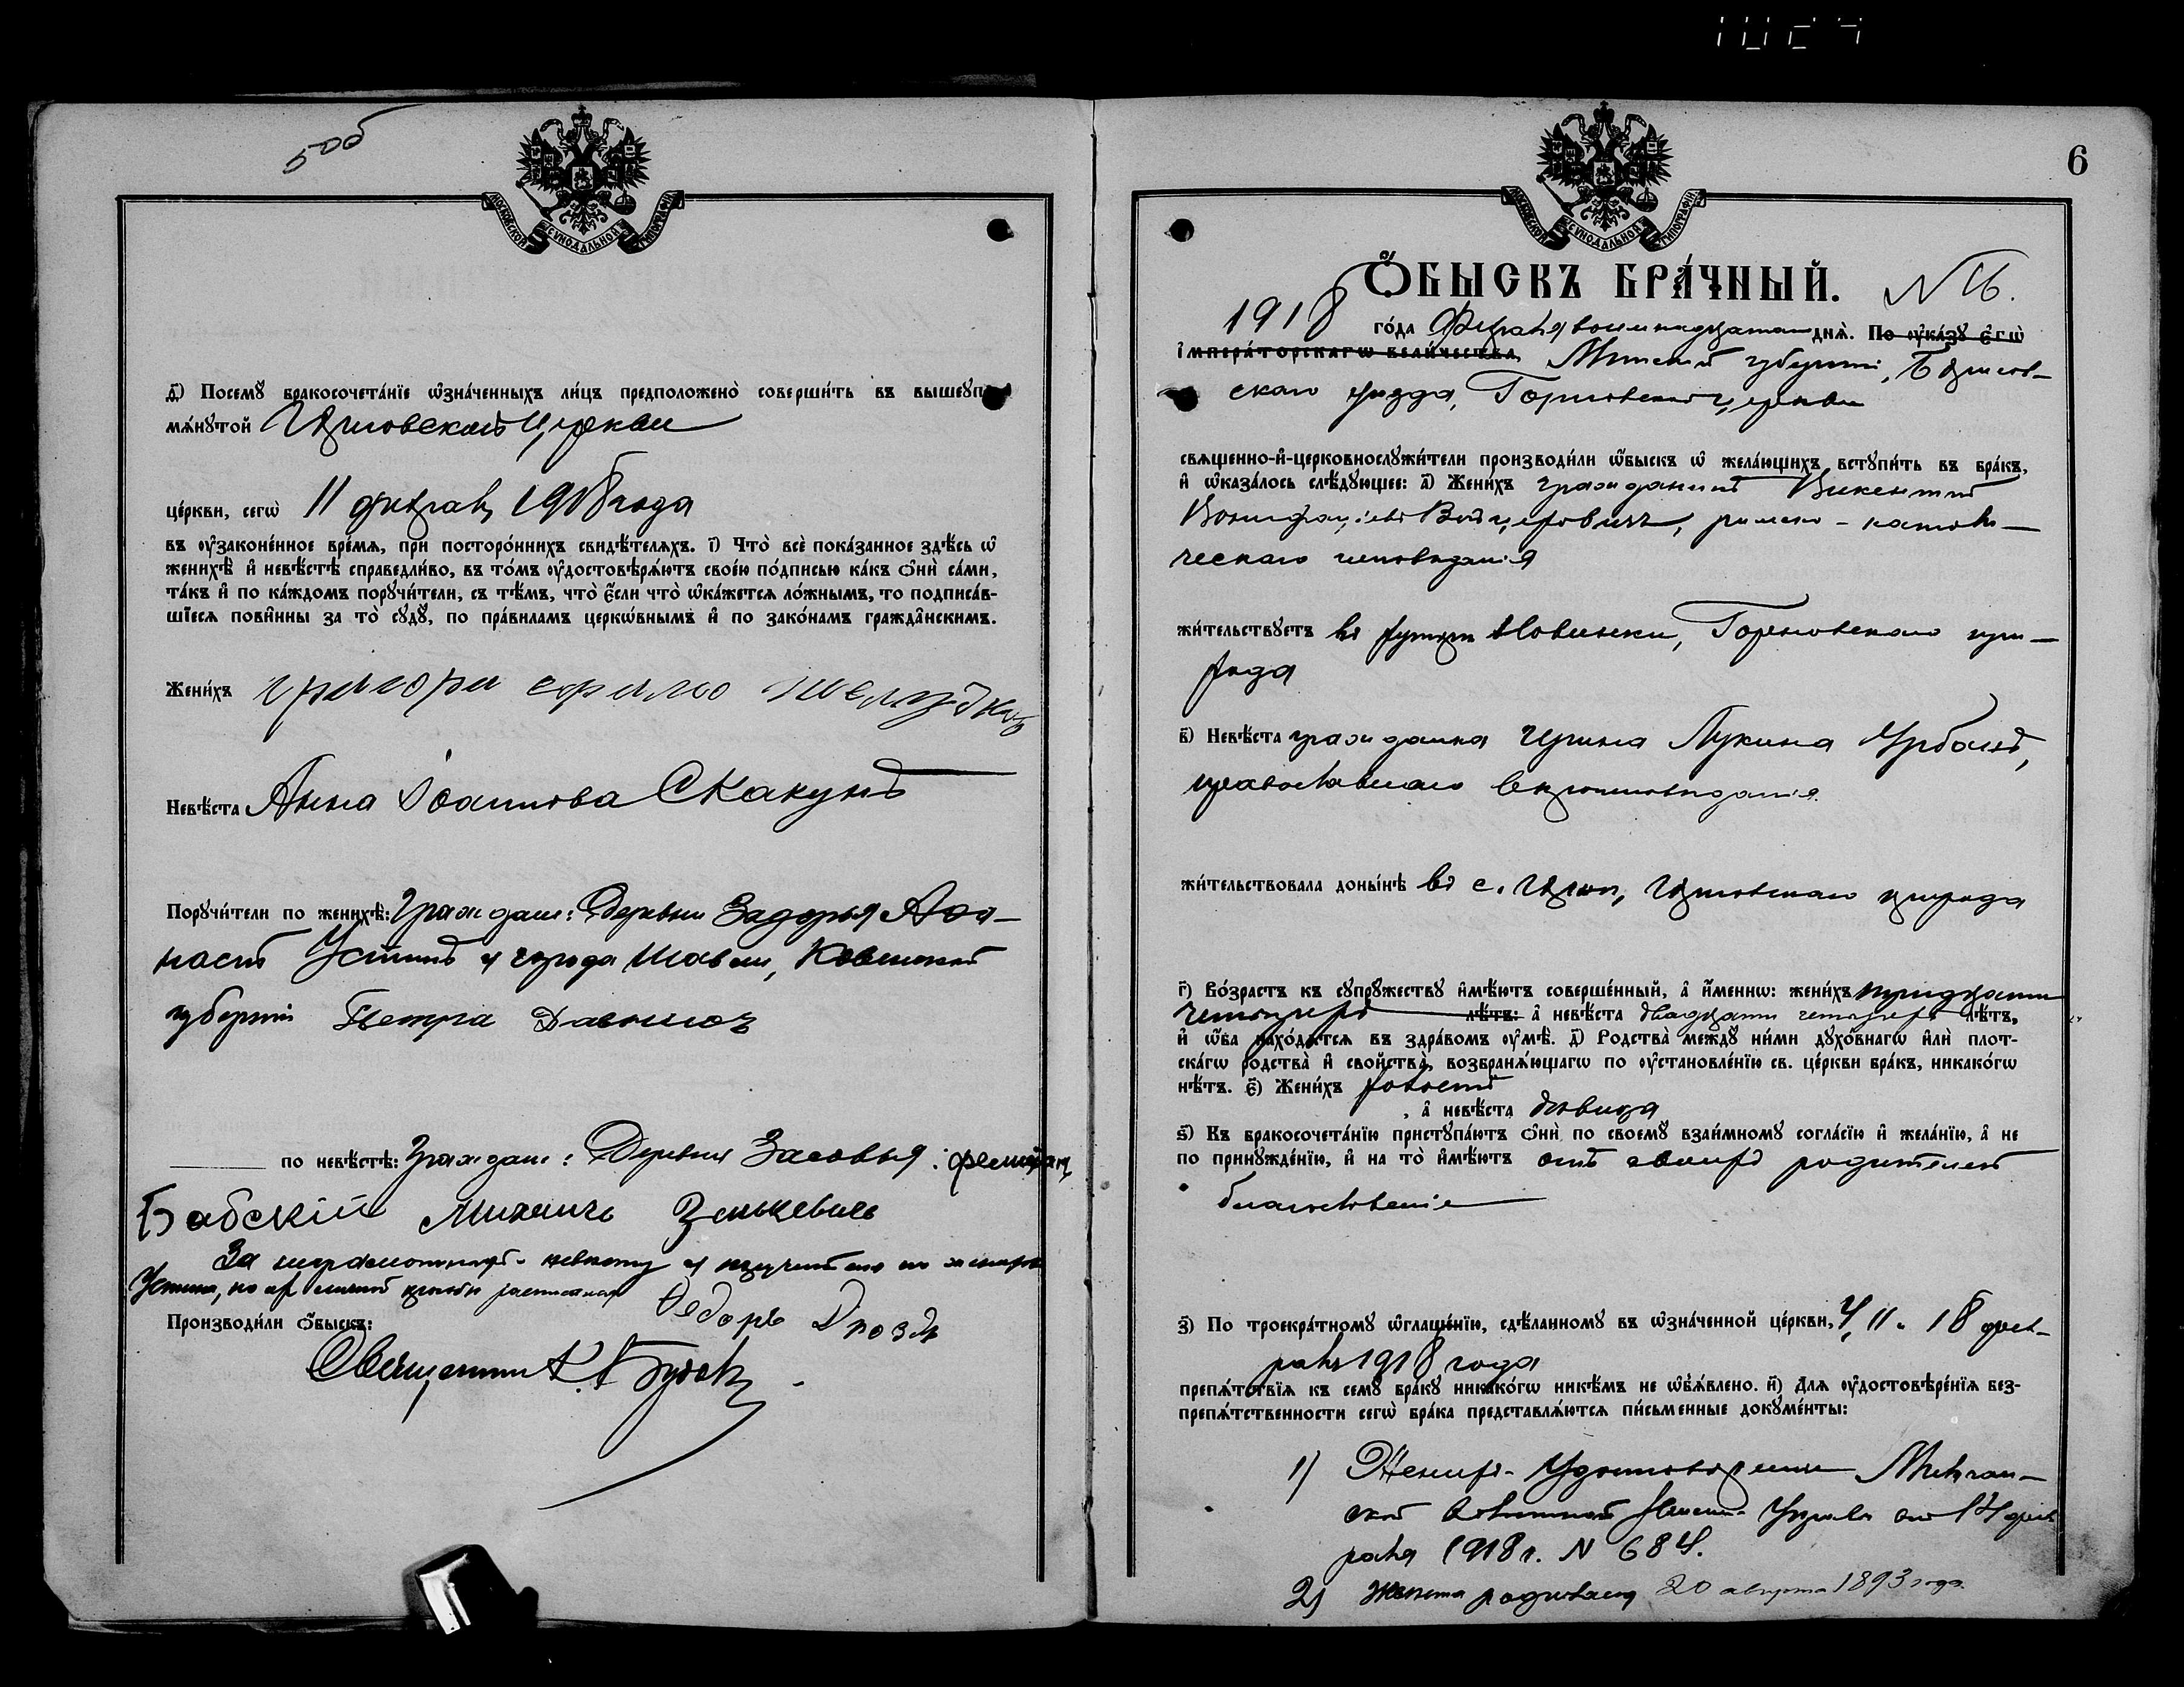 МОСКОВСКОЙ СѴНОДАЛЬНОЙ ТИПОГРАФІИ
д҃) Посемꙋ бракосочета́нїе ѡ҆зна́ченныхъ ли́цъ предположено̀ соверши́ть въ вышеꙋпо
мѧ́нꙋтой церкви
це́ркви, сегѡ̀ 11 феврал. 1918 года
въ ᲂу҆законе́нное вре́мѧ, при посторо́ннихъ свидѣ́телѧхъ. і҃) Что̀ всѐ пока́занное здѣ́сь ѡ҆
женихѣ̀ и҆ невѣ́стѣ справедли́во, въ то́мъ ᲂу҆достовѣрѧ́ютъ свое́ю по́дписью ка́къ ѻ҆нѝ са́ми,
та́къ и҆ по ка́ждомъ порꙋчи́тели, съ тѣ́мъ, что̀ є҆́сли что̀ ѡ҆ка́жетсѧ ло́жнымъ, то подписа́в-
шїесѧ пови́нны за то̀ сꙋдꙋ̀, по пра́виламъ церкѡ́внымъ и҆ по зако́намъ гражда̑нскимъ.
Жени́хъ
Невѣ́ста Анна Іоаннова Скакунъ
Порꙋчи́тели по женихѣ̀: Граждане: Деревни Задорья Афа-
насій Устинъ и города Шавли, Ковенской
губерніи Петра
по невѣ́стѣ: Граждане: Деревни Засовья:
Бабскій Михаилъ Зенькевичъ
За неграмотн.
Устина, по ихъ личной просьбѣ росписался Ѳедоръ Дроздъ
Производи́ли ѻ҆́быскъ:
Священникъ
6
МОСКОВСКОЙ СѴНОДАЛЬНОЙ ТИПОГРАФІИ
Ѻ҆́БЫСКЪ БРА́ЧНЫЙ. N 16.
1918 го́да Февраля восемнадцатаго днѧ̀. По ᲂу҆ка́зꙋ є҆гѡ̀
і҆мпера́торскагѡ вели́чества, Минской губерніи, Борисов-
скаго уѣзда, церкви
свѧщенно-и҆-церковнослꙋжи́тели производи́ли ѡ҆́быскъ ѡ҆ жела́ющихъ встꙋпи́ть въ бра́къ,
и҆ ѡ҆каза́лось слѣ́дꙋющее: а҃) Жени́хъ гражданинъ Викентій
Бонифаціевъ Войцеховичъ, римско-католи-
ческаго исповѣданія
жи́тельствꙋетъ въ хуторѣ Новинки, при-
хода
в҃) Невѣ́ста гражданка Ирина Лукина Урбанъ,
православнаго вѣроисповѣданія.
жи́тельствовала доны́нѣ въ с. прихода
г҃) Во́зрастъ къ сꙋпрꙋ́жествꙋ и҆мѣ́ютъ соверше́нный, а҆ и҆́меннѡ: жени́хъ тридцати
четырехъ лѣ́тъ: а҆ невѣ́ста двадцати четырехъ лѣ́тъ,
и҆ ѡ҆́ба нахо́дѧтсѧ въ здра́вомъ ᲂу҆мѣ̀. д҃) Родства̀ междꙋ̀ ни́ми дꙋхо́внагѡ и҆лѝ плот-
ска́гѡ родства̀ и҆ свойства̀, возбранѧ́ющагѡ по ᲂу҆становле́нїю св. це́ркви бра́къ, никако́гѡ
нѣ́тъ. є҃) Жени́хъ холостъ
, а҆ невѣ́ста дѣвица
ѕ҃) Къ бракосочета́нїю пристꙋпа́ютъ ѻ҆нѝ по своемꙋ̀ взаи́мномꙋ согла́сїю и҆ жела́нїю, а҆ не
по принꙋжде́нїю, и҆ на то̀ и҆мѣ́ютъ отъ своихъ родителей
благословеніе
з҃) По троекра́тномꙋ ѡ҆глаше́нїю, сдѣ́ланномꙋ въ ѡ҆зна́ченной це́ркви, 4, 11 и 18 фев-
раля 1918 года
препѧ́тствїѧ къ семꙋ̀ бра́кꙋ никако́гѡ никѣ́мъ не ѡ҆б̾ѧ́влено. и҃) Для ᲂу҆достовѣре́нїѧ без-
препѧ́тственности сегѡ̀ бра́ка представлѧ́ютсѧ пи́сьменные докꙋме́нты:
1) Жениха - Удостовѣреніе
Волостной Земской Управы отъ 14 фев
раля 1918 г. N 684.
2) Невѣста родилась 20 августа 1893 года.